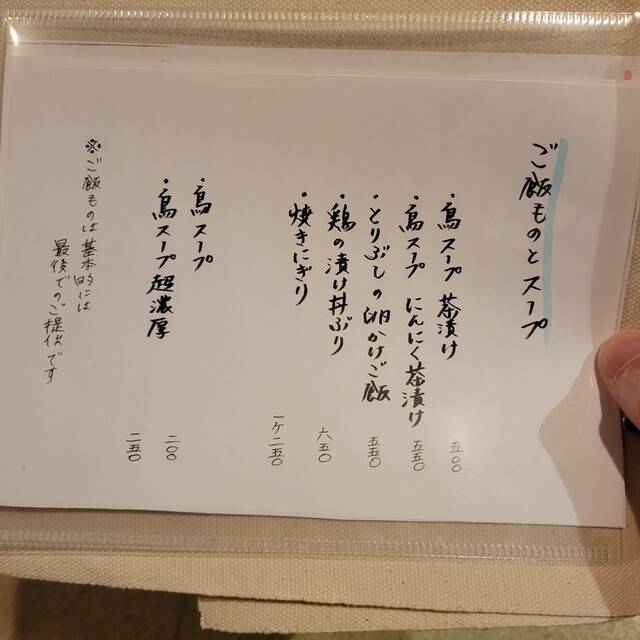 ご飯ものとスープ
・鳥スープ 茶漬け 五〇〇
・鳥スープ にんにく茶漬け 五五〇
・とりぶしの卵かけご飯 五五〇
・鶏の漬け丼ぶり 六五〇
・焼きにぎり 一ケ二五〇
・鳥スープ 二〇〇
・鳥スープ 超濃厚 二五〇
※ご飯ものは基本的には
最後でのご提供です